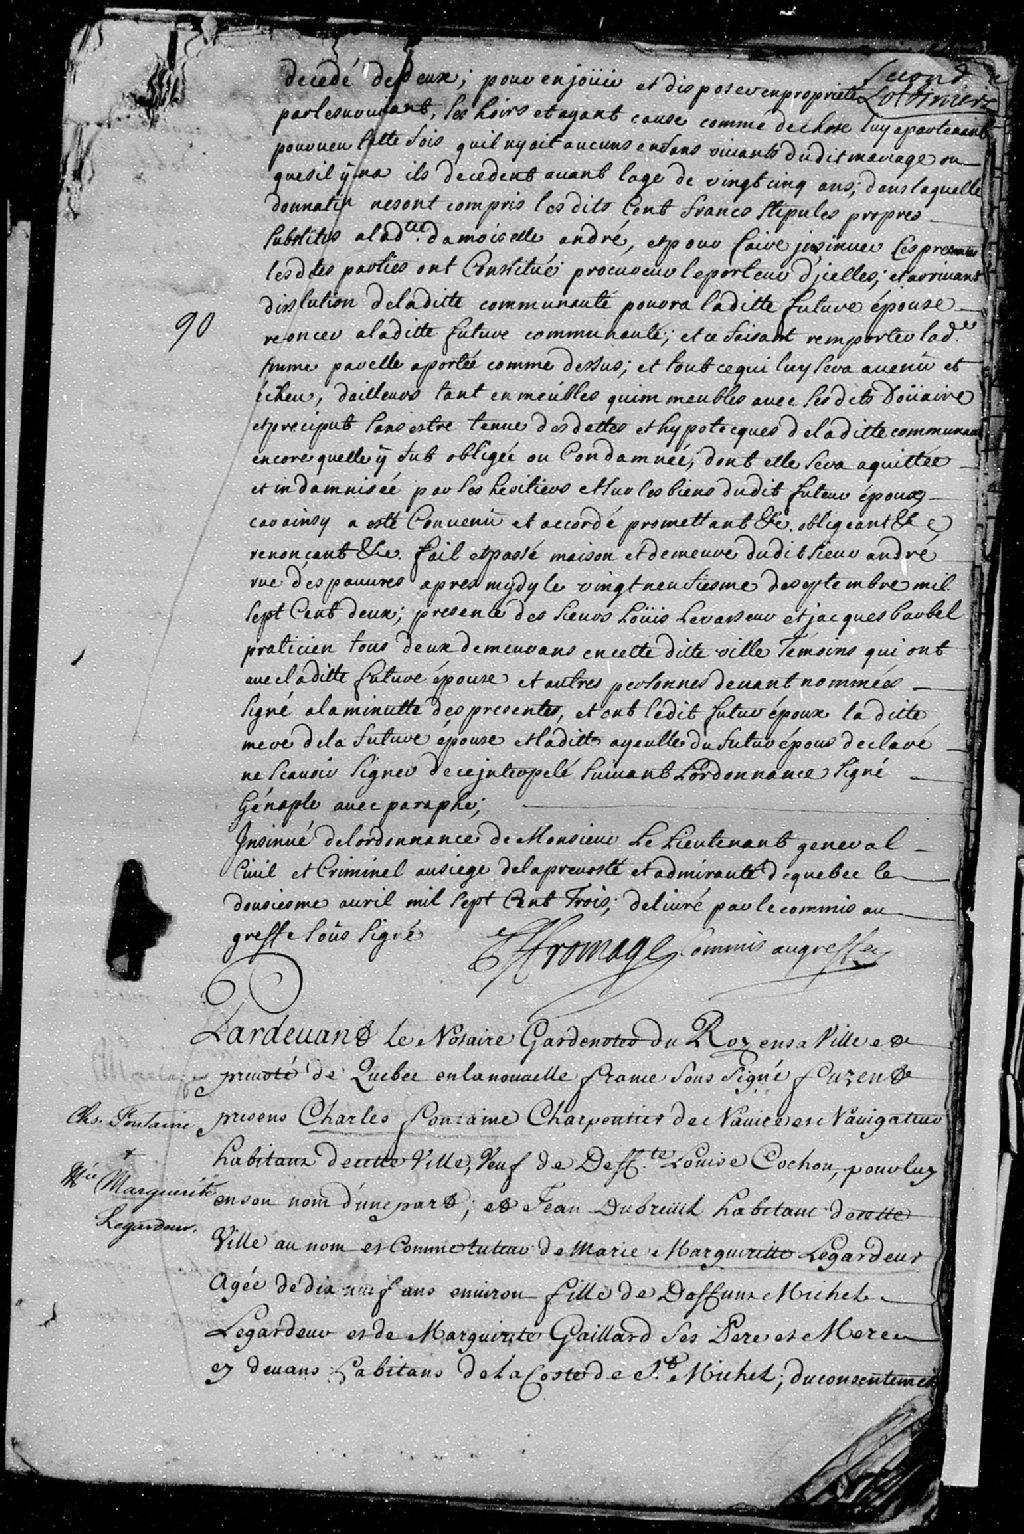 Second
decedé d'eux; pour en joüir et disposer en proprieté
par le survivant, ses hoirs et ayant cause comme de chose luy apartenant
pourveu toutte fois quil ny ait aucuns enfans vivants dudit mariage ou
que sil ÿ en a ils decedent avant lage de vingt cinq ans; dans laquelle
donnation ne sont compris lesdits Cent francs stipules propres
substitus a lad.te damoiselle andré, et pour faire jnsinuer ces presentes
lesdites parties ont Constitué procureur le porteur d'jcelles; et arrivant
dissolution de laditte communauté poura laditte future épouse
renoncer a laditte future communauté; et ce faisant remporter lad.
somme par elle aportée comme dessus; et tout ce qui luy sera avenü et
écheu, dailleurs tant en meubles quimmeubles avec sesdits Doüaire
et preciput sans estre tenue des dettes et hypotecques de laditte communauté
encore quelle ÿ fut obligée ou Condamnée; dont elle sera aquittée
et indamnisée par les heritiers et sur les biens dudit futeur époux
car ainsy a esté Convenü et accordé promettant &c. obligeant &c
renoncant &c. fait et passé maison et demeure dudit sieur andré
rue des pauvres apres mydy le vingt neufiesme de septembre mil
sept Cent deux; presence des sieurs Loüis Levasseur et jacques barbel
praticien tous deux demeurans en cette ditte ville Témoins qui ont
avec laditte future épouse et autres personnes devant nommées
signé a la minutte des presentes, et ont ledit futur époux la ditte
mere de la future épouse et laditte ayeulle du futur époux declaré
ne scavoir signer de ce jnterpelé suivant Lórdonnance signé
Génaple avec paraphe;
90
Jnsinué de lordonnance de Monsieur Le Lieutenant general
Civil et Criminel au siege de la prevosté et admirauté de quebec le
dousiesme avril mil sept Cent Trois; delivré par le commis au
greffe soüs signé
Fromage Commis au greffe
Pardevant Le Notaire Gardenotes du Roy en sa Ville et
prevoté de Quebec en la nouvelle france sous signé furent
presens Charles fontaine Charpentier de Navire et Navigateur
habitant de cette Ville, Veuf de Deff.te Louise Cochon, pour luy
en son nom d'une part; et Jean Dubreüil habitant de cette
Ville au nom et Comme tuteur de Marie Marguerite Legardeur
Agée de dix neuf ans environ fille de Deffunt Michel
Legardeur et de Marguerite Gaillard ses Pere et Mere
ey devans habitans de la Coste de S.t Michel; du consentement
Chs. Fontaine
+
Mie Marguerite
Legardeur.